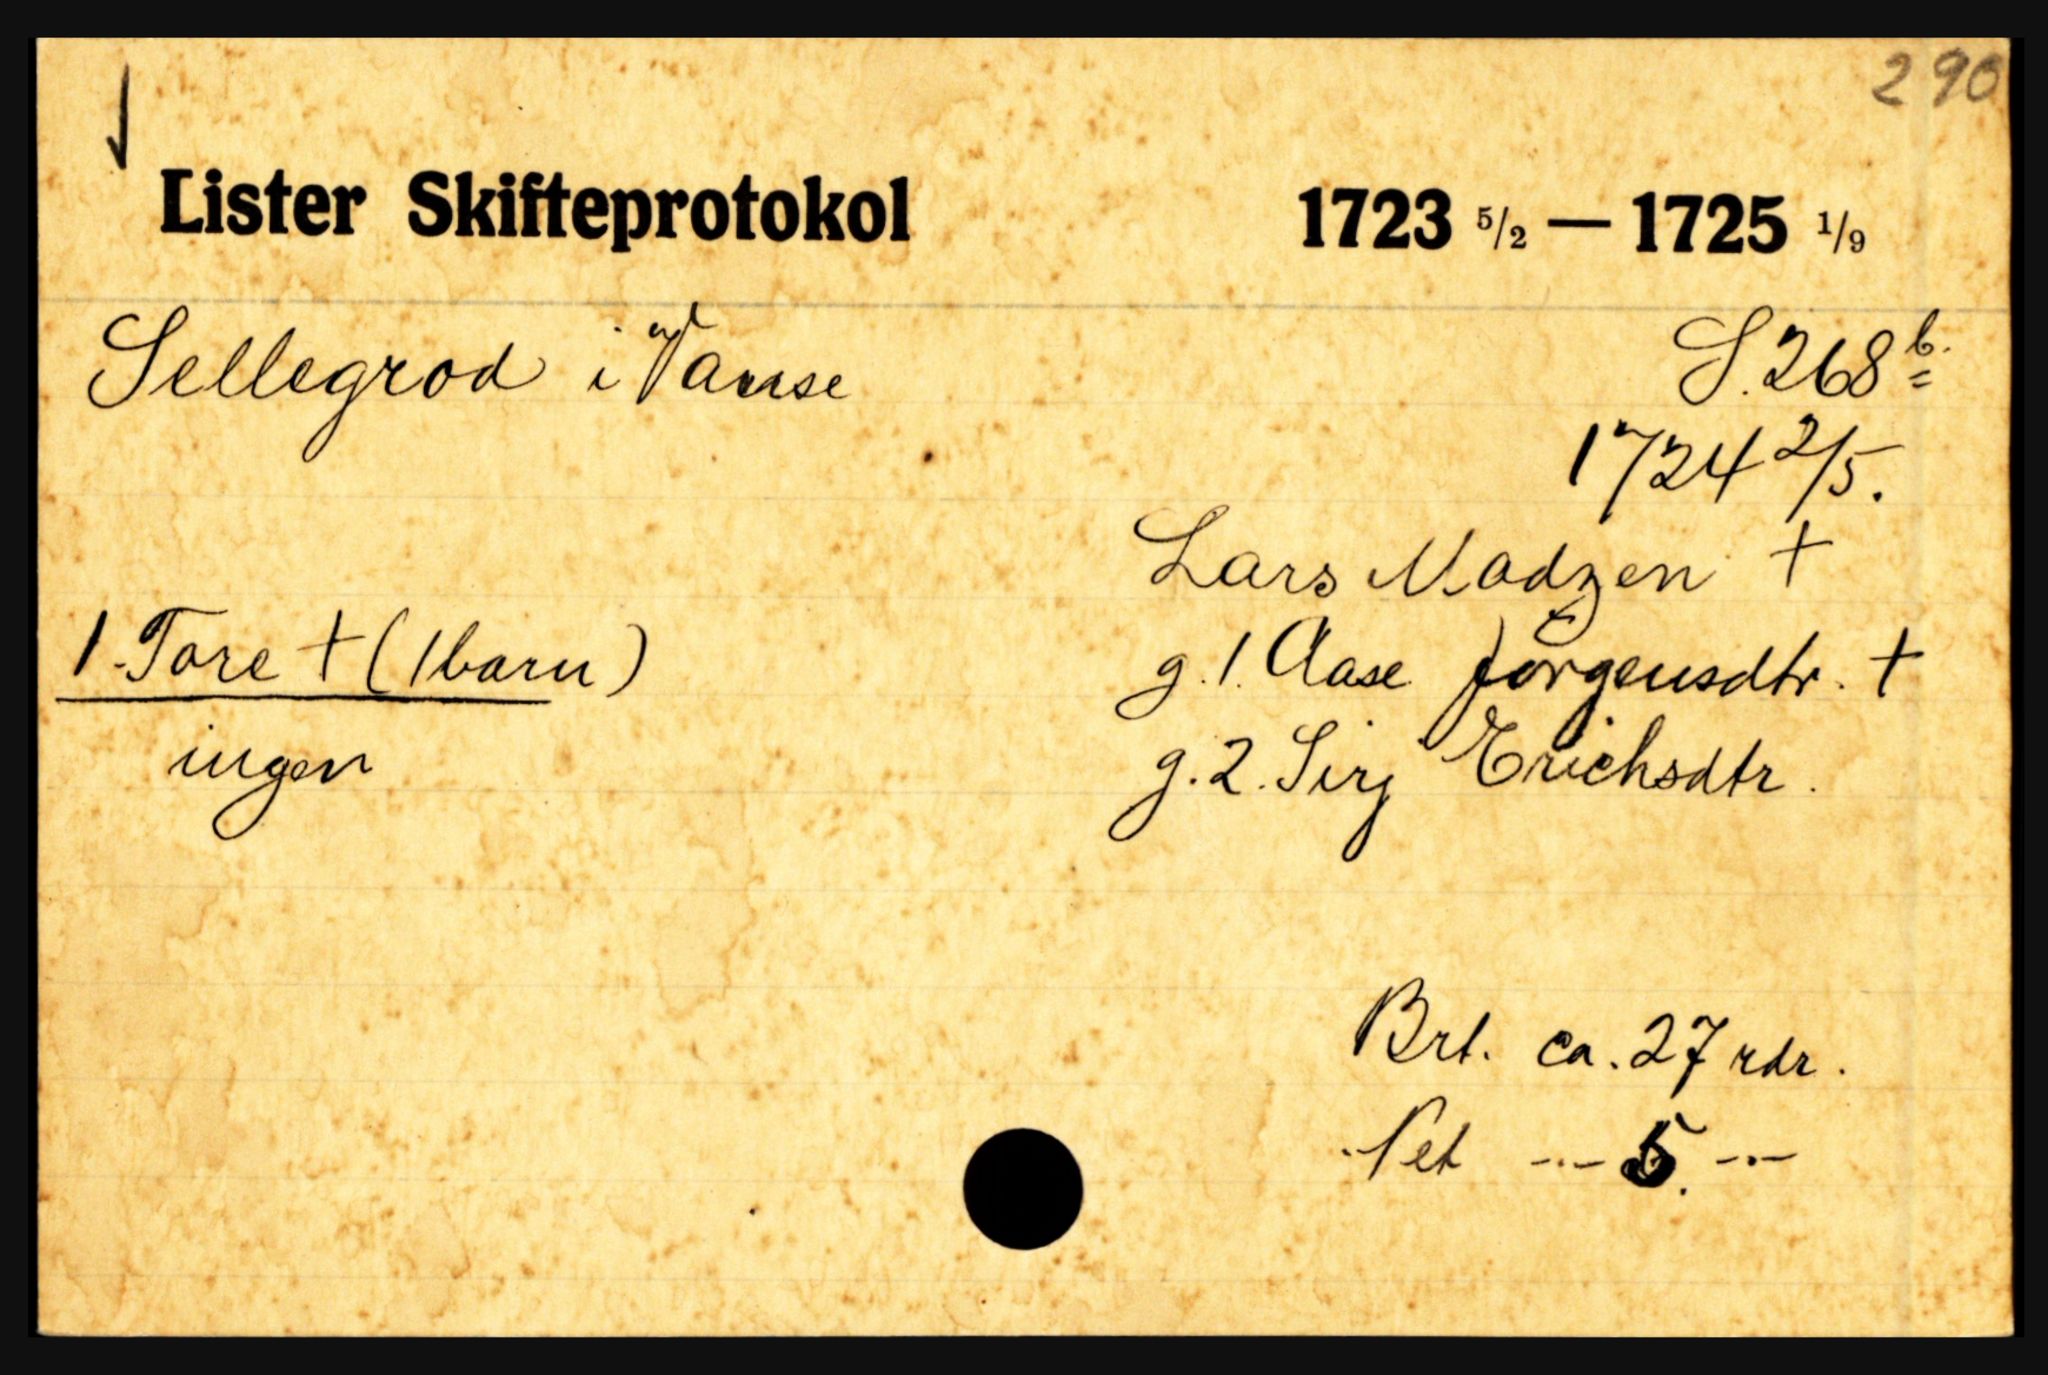 290
Lister Skifteprotokol 1723 5/2 — 1725 1/9
Sellegrod i Vanse S. 268 b.
1724 2/5.
Lars Madzen +
1. Tore + (1 barn) g. 1. Aase Jörgensdtr. +
ingen g. 2. Sirj Erichsdtr.
Brt. ca. 27 rdr.
Net -.- 5. -.-